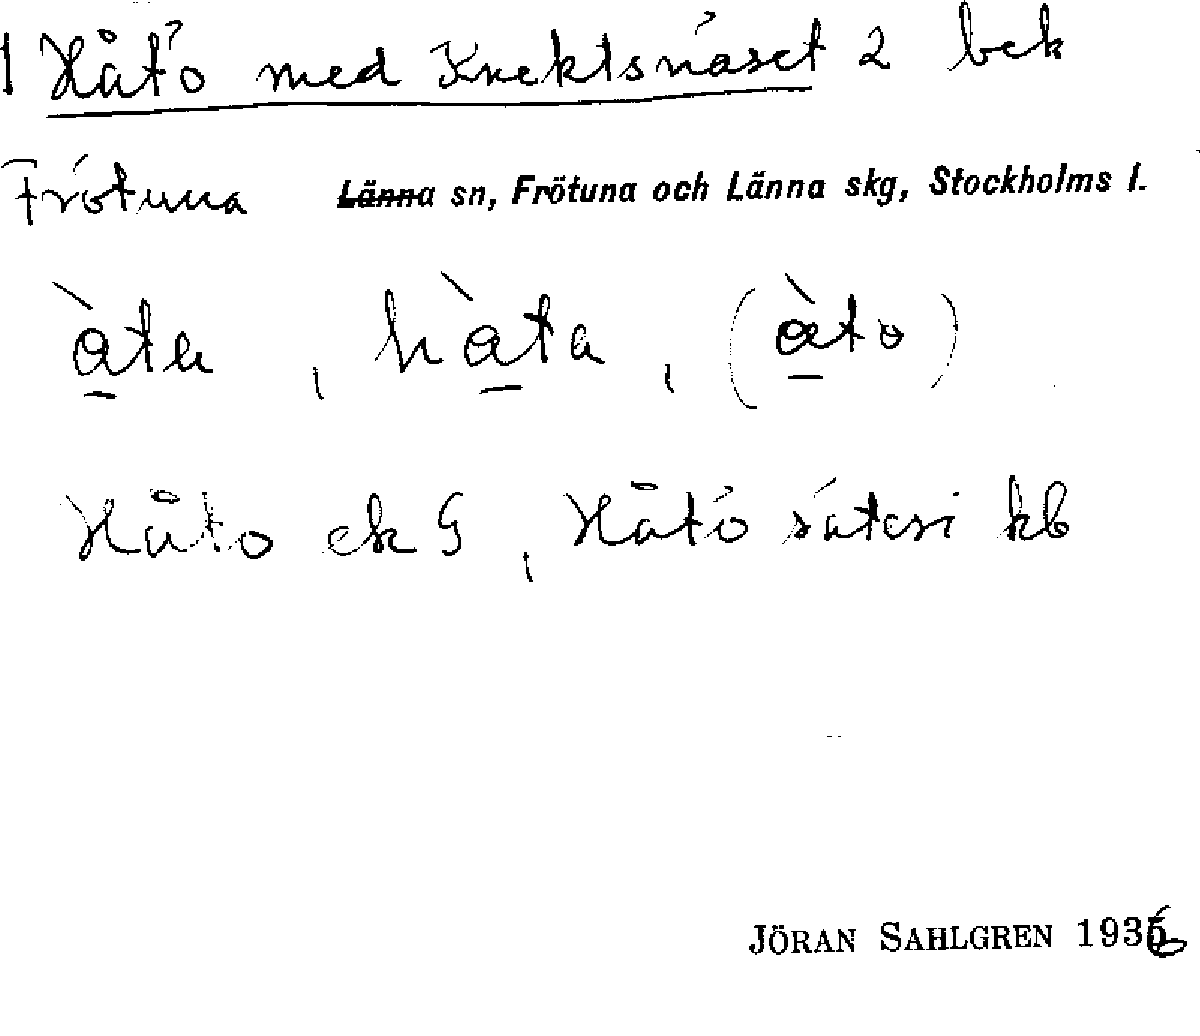 1 Håtö med Knektsnäset 2 bek
Frötuna Länna sn, Frötuna och Länna skg, Stockholms l.
àta , hàta , (àto)
Håtö ek G , Håtö säteri kb
JÖRAN SAHLGREN 1936